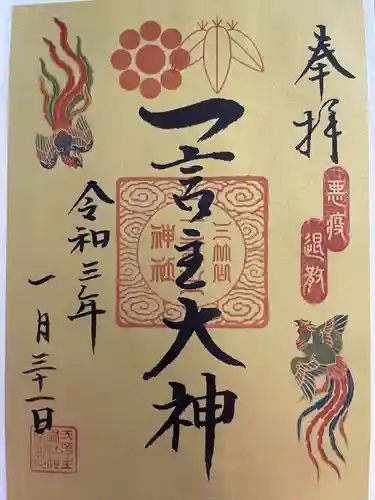 奉拝
悪疫
退散
一言主大神
令和三年
一月三十一日